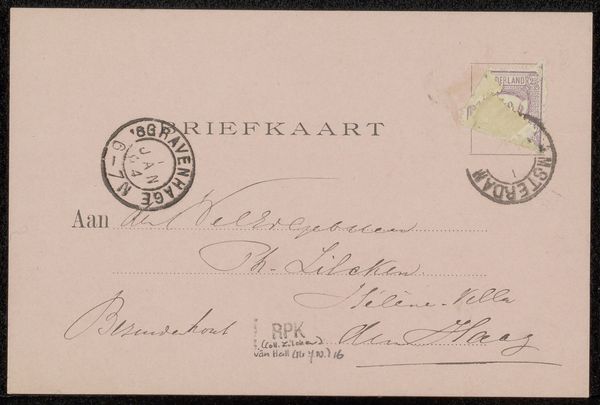 DERLAND
BRIEFKAART
'SGRAVENHAGE
1
JAN
94
6-7N
MSTERDAM
1
Aan den WelEdelgeboren
Ph. Zilcken
Hélène-Villa
Bezuidenhout den Haag
RPK
(coll. Zilcken)
van Hall (Mr. J.N.) 16